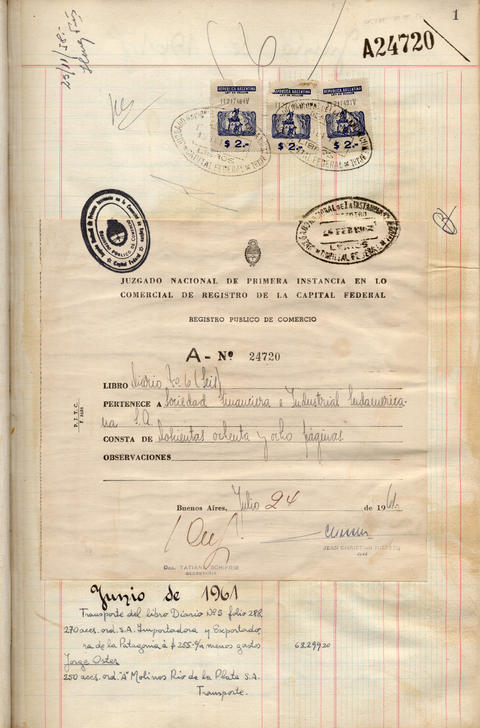 1
A24720
REPUBLICA ARGENTINA
REPUBLICA ARGENTINA
REPUBLICA ARGENTINA
$ 2.-
$ 2.-
$ 2.-
CAPITAL FEDERAL
JUZGADO NACIONAL DE PRIMERA INSTANCIA EN LO
COMERCIAL DE REGISTRO DE LA CAPITAL FEDERAL
REGISTRO PUBLICO DE COMERCIO
A - Nº 24720
LIBRO Diario No 6 (Seis)
PERTENECE A Sociedad Financiera e Industrial Sudamerica-
na S.A.
CONSTA DE doscientas ochenta y ocho páginas
OBSERVACIONES
Buenos Aires, Julio 24 de 196
SECRETARIA
JUEZ
Junio de 1961
Transporte del libro Diario Nº 5 folio 288
270 accs. ord. S.A. Importadora y Exportado
ra de la Patagonia á $ 255.- menos gastos
Jorge Oster
250 accs. ord. "A" Molinos Rio de la Plata S.A.
Transporte.